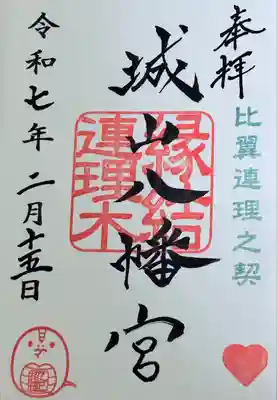 奉拝
比翼連理之契
城山八幡宮
縁結
連理木
令和七年 二月十五日